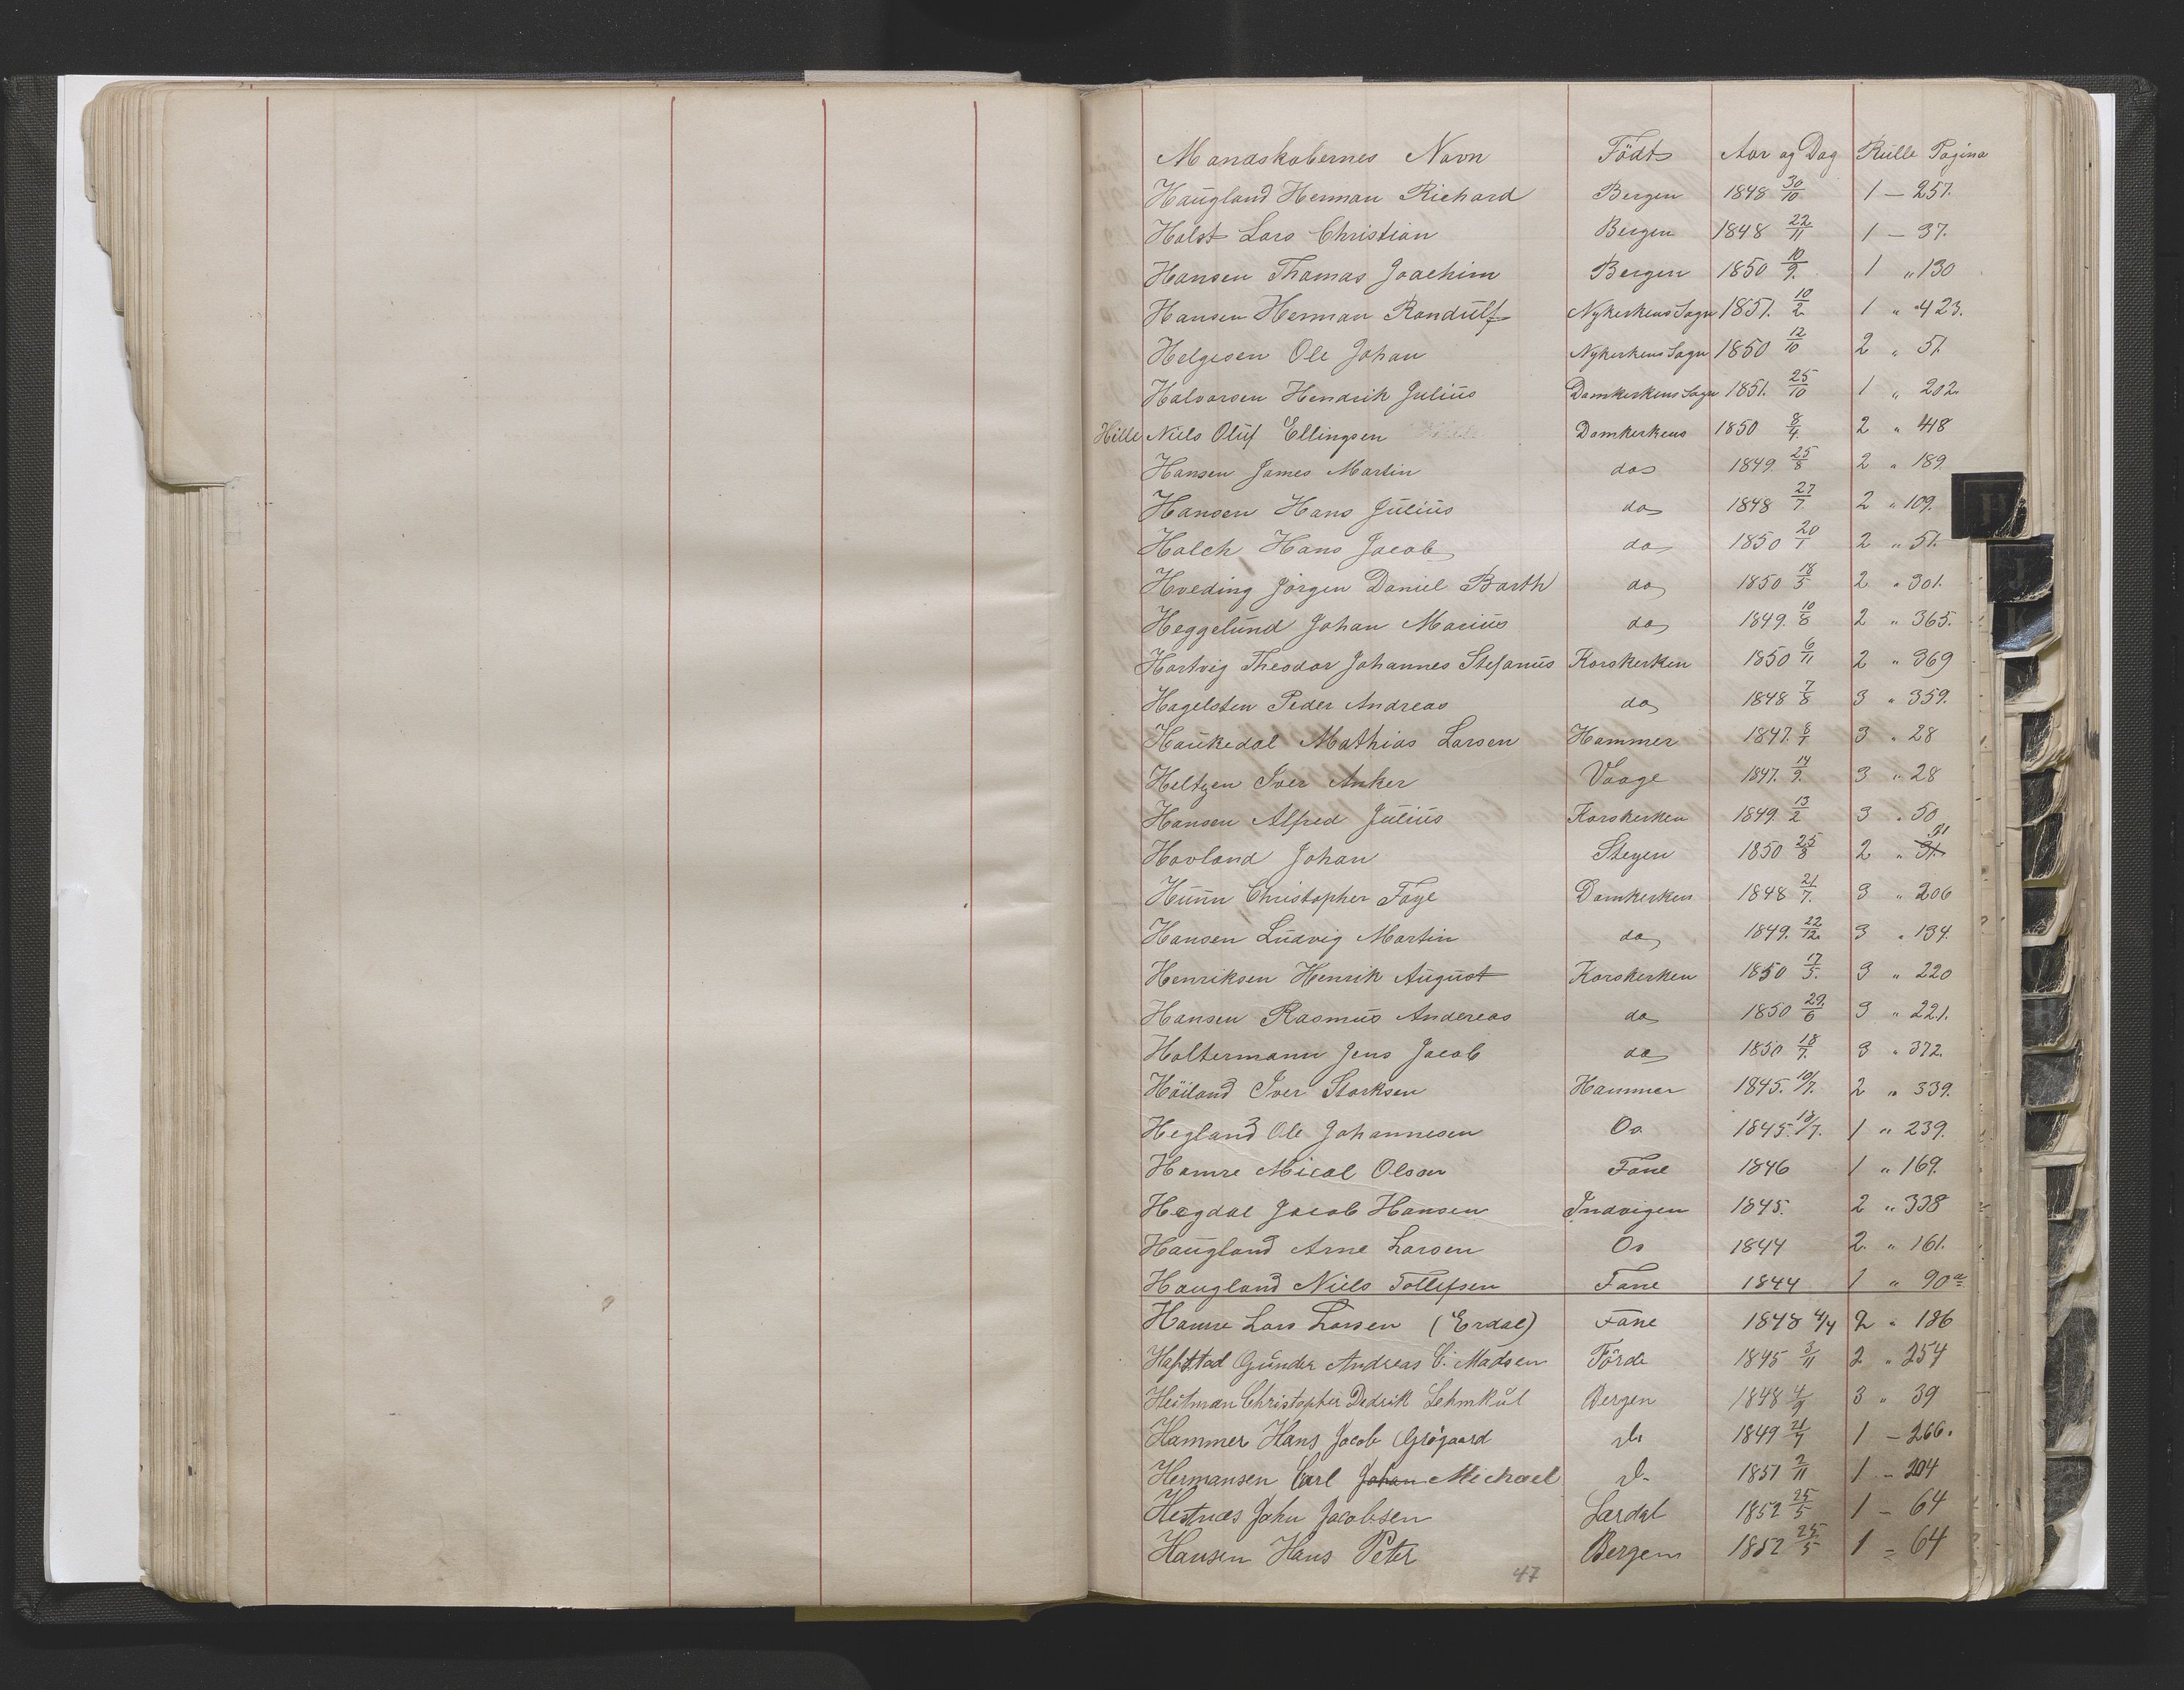 Mandskabernes Navn Födt Aar og Dag Rulle Pagina
Haugland Herman Richard Bergen 1848 30/10 1 — 257.
Holst Lars Christian Bergen 1848 22/11 1 — 37.
Hansen Thomas Joachim Bergen 1850 10/9. 1 " 130
Hansen Herman Randulf Nykerkens Sogn 1851. 10/2 1 " 423.
Helgesen Ole Johan Nykerkens Sogn 1850 12/10 2 " 51.
Halvorsen Hendrik Julius Domkerkens Sogn 1851. 25/10 1 " 202.
Hille Niels Oluf Ellingsen Domkerkens 1850 8/4. 2 " 448
Hansen James Martin do 1849. 25/8 2 " 189.
Hansen Hans Julius do 1848 27/7 2 " 109.
Holch Hans Jacob do 1850 20/1 2 " 51.
Hveding Jörgen Daniel Barth do 1850 18/5 2 " 301.
Heggelund Johan Marius do 1849. 10/8 2 " 365.
Hartvig Theodor Johannes Stefanus Korskerken 1850 6/11 2 " 369
Hagelsten Peder Andreas do 1848 7/8 3 " 359.
Haukedal Mathias Larsen Hammer 1847. 8/7 3 " 28
Heltzen Iver Anker Vaage 1847. 14/9. 3 " 28
Hansen Alfred Julius Korskerken 1849. 13/2 3 " 50
Hovland Johan Stegen 1850 25/8 2 " 31. 51
Huun Christopher Faye Domkerken 1848 21/7. 3 " 206
Hansen Ludvig Martin do 1849. 22/12. 3 " 134.
Henriksen Henrik August Korskerken 1850 17/5. 3 " 220
Hansen Rasmus Andereas do 1850 29/6 3 " 221.
Holtermann Jens Jacob do 1850 18/7. 3 " 372.
Höiland Iver Storksen Hammer 1845. 10/7. 2 " 339.
Hegland Ole Johannesen Os 1845. 18/7. 1 " 239.
Hamre Mical Olsen Fane 1846 1 " 169.
Hegdal Jacob Hansen Indvigen 1845. 2 " 338
Haugland Arne Larsen Os 1844 2 " 161.
Haugland Niels Tollefsen Fane 1844 1 " 90a
Hamre Lars Larsen (Erdal) Fane 1848 4/4 2 " 186
Hafstad Gunder Andreas C. Madsen Förde 1845 3/11 2 " 254
Heitman Christopher Dedrik Lehmkul Bergen 1848 4/9 3 " 39
Hammer Hans Jacob Grögaard do 1849 21/7 1 — 266.
Hermansen Carl Johan Michael do 1851 2/11 1 — 204
Hestnæs John Jacobsen Lærdal 1852 25/5 1 — 64
Hansen Hans Peter Bergen 1852 25/5 1 = 64
47
H
J
K